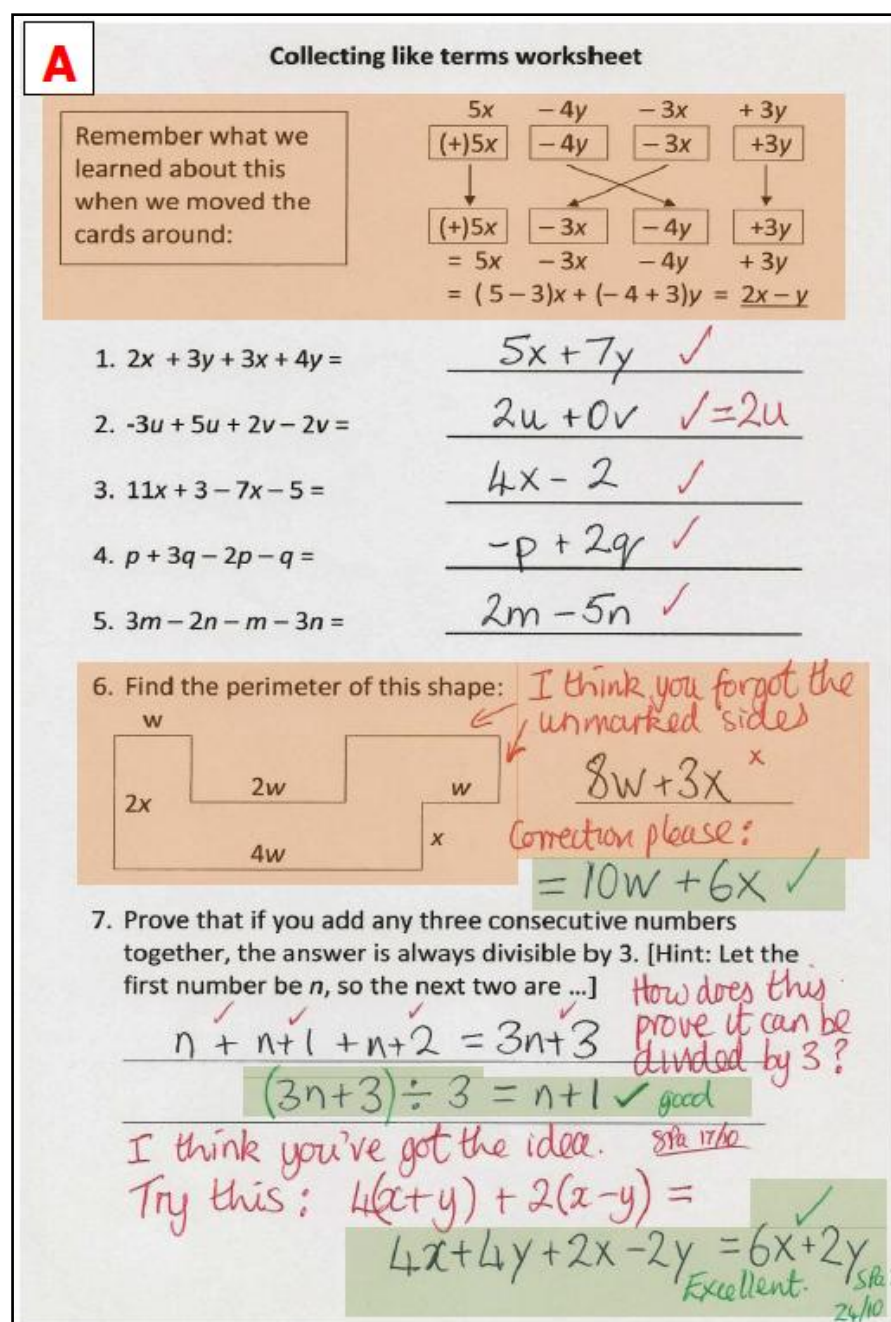 A
Collecting like terms worksheet
Remember what we
learned about this
when we moved the
cards around:
5x – 4y – 3x + 3y
(+)5x – 4y – 3x +3y
(+)5x – 3x – 4y +3y
= 5x – 3x – 4y + 3y
= ( 5 – 3)x + (– 4 + 3)y = 2x – y
1. 2x + 3y + 3x + 4y = 5x + 7y ✓
2. -3u + 5u + 2v – 2v = 2u + 0v ✓ = 2u
3. 11x + 3 – 7x – 5 = 4x - 2 ✓
4. p + 3q – 2p – q = -p + 2q ✓
5. 3m – 2n – m – 3n = 2m - 5n ✓
6. Find the perimeter of this shape:
I think you forgot the
unmarked sides
w
2w
w
2x
x
4w
8w + 3x x
Correction please:
= 10w + 6x ✓
7. Prove that if you add any three consecutive numbers
together, the answer is always divisible by 3. [Hint: Let the
first number be n, so the next two are ...]
How does this
prove it can be
divided by 3?
n + n+1 + n+2 = 3n+3
(3n+3) ÷ 3 = n+1 ✓ good
I think you've got the idea. SPa 17/10
Try this: 4(x+y) + 2(x-y) =
4x+4y+2x-2y = 6x+2y ✓
Excellent. SPa
24/10